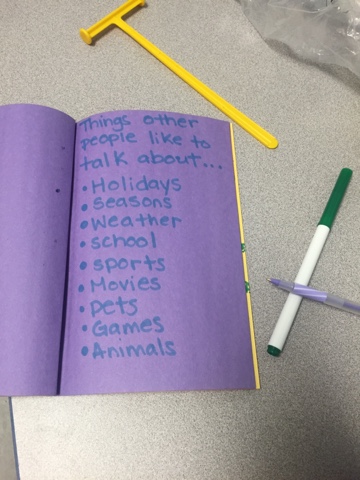 Things other
people like to
talk about...
• Holidays
• seasons
• weather
• school
• sports
• Movies
• pets
• Games
• Animals